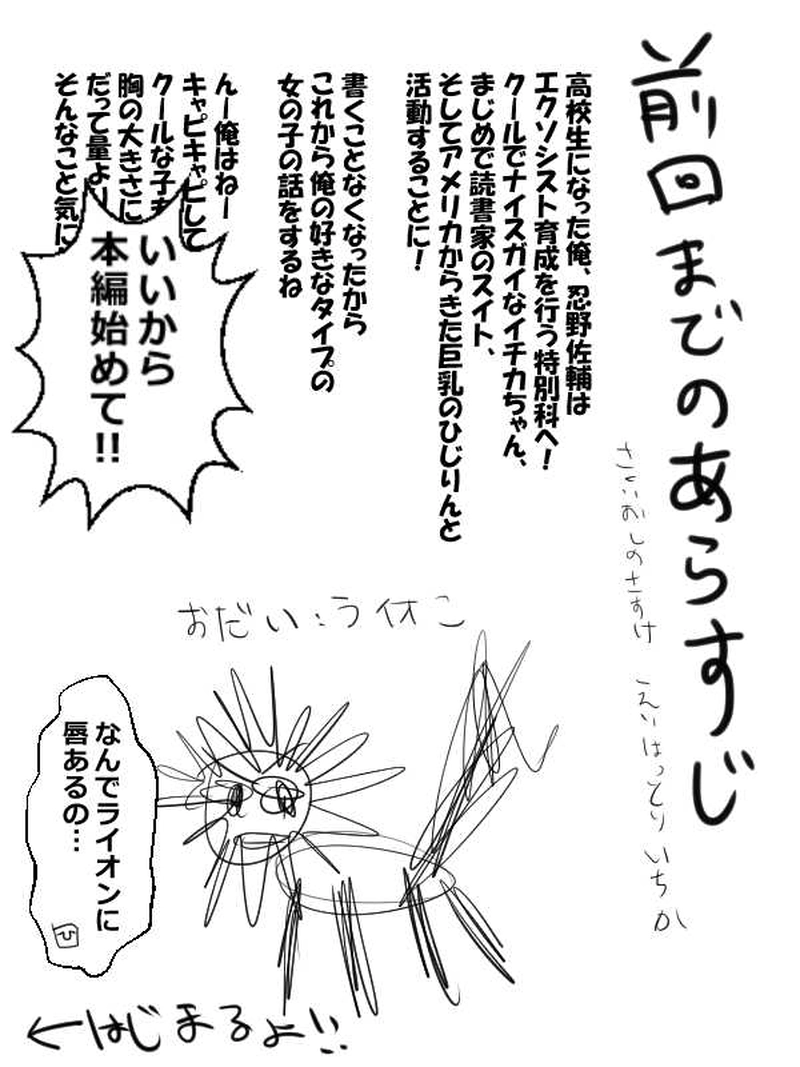 前回までのあらすじ
さくい おしのさすけ
え はっとり いちか
高校生になった俺、忍野佐輔は
エクソシスト育成を行う特別科へ!
クールでナイスガイなイチカちゃん、
まじめで読書家のスイト、
そしてアメリカからきた巨乳のひじりんと
活動することに!
書くことなくなったから
これから俺の好きなタイプの
女の子の話をするね
んー俺はねー
キャピキャピして
クールな子も
胸の大きさに
だって量よ
そんなこと気に
いいから
本編始めて!!
おだい:ライオン
なんでライオンに
唇あるの…
ひ
はじまるよ!!